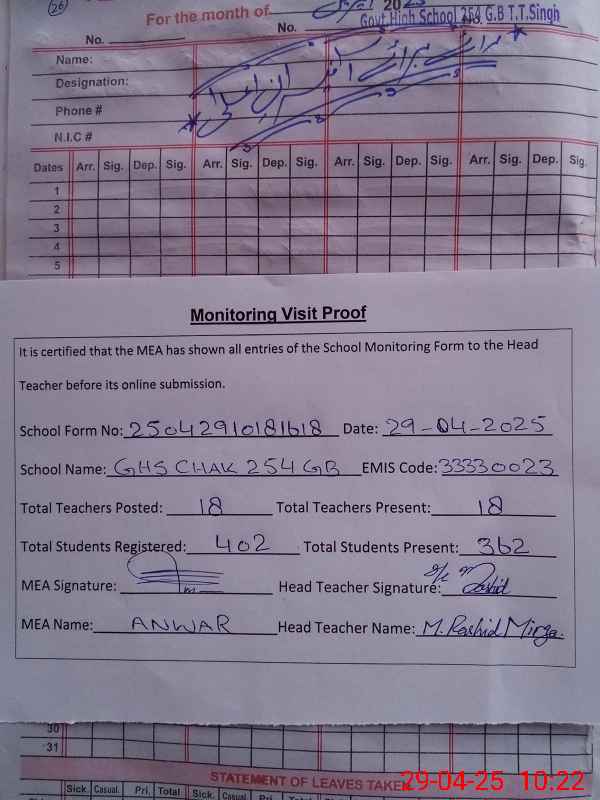 26
For the month of اپریل 2025
Govt High School 254 G.B T.T.Singh
No. No.
Name:
Designation:
Phone #
N.I.C #
برائے
Dates Arr. Sig. Dep. Sig. Arr. Sig. Dep. Sig. Arr. Sig. Dep. Sig. Arr. Sig. Dep. Sig.
1
2
3
4
5
Monitoring Visit Proof
It is certified that the MEA has shown all entries of the School Monitoring Form to the Head
Teacher before its online submission.
School Form No: 25042910181618 Date: 29-04-2025
School Name: GHS CHAK 254 GB EMIS Code: 33330023
Total Teachers Posted: 18 Total Teachers Present: 18
Total Students Registered: 402 Total Students Present: 362
MEA Signature: Head Teacher Signature: Rashid
MEA Name: ANWAR Head Teacher Name: M. Rashid Mirza.
30
31
STATEMENT OF LEAVES TAKEN
Sick. Casual. Pri. Total Sick. Casual. Pri. Total
29-04-25 10:22